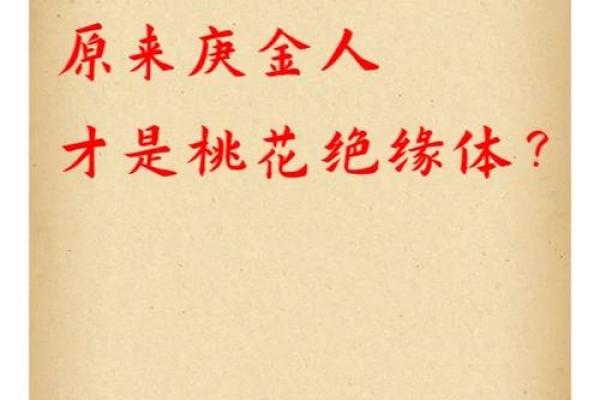 原来庚金人
才是桃花绝缘体？